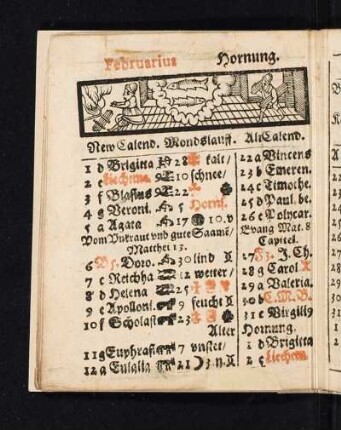 Februarius Hornung.
New Calend. Mondslauff. Alt Calend.
1 d Brigitta 28 kalt/ 22 a Vincens
2 e Liechtme. 10 schnee/ 23 b Emeren.
3 f Blasius 22 24 c Timothe.
4 g Veroni. 5 Horns. 25 d Paul. be.
5 a Agata 17 10. v 26 e Polycar.
Vom Vnkraut vnd gute Saamē/ Evang Mat. 8
Matthei 13. Capitel.
6 Doro. 30 lind 27 J. Ch.
7 c Reichha 12 wetter/ 28 g Carol
8 d Helena 25 29 a Valeria.
9 e Apolloni. 9 feucht 30 b C.M.B.
10 f Scholast 23 31 c Virgiliy
Alter Hornung.
11 g Euphrasi 7 vnstet/ 1 d Brigitta
12 a Eulalia 21 3 n. 2 e Liechtm